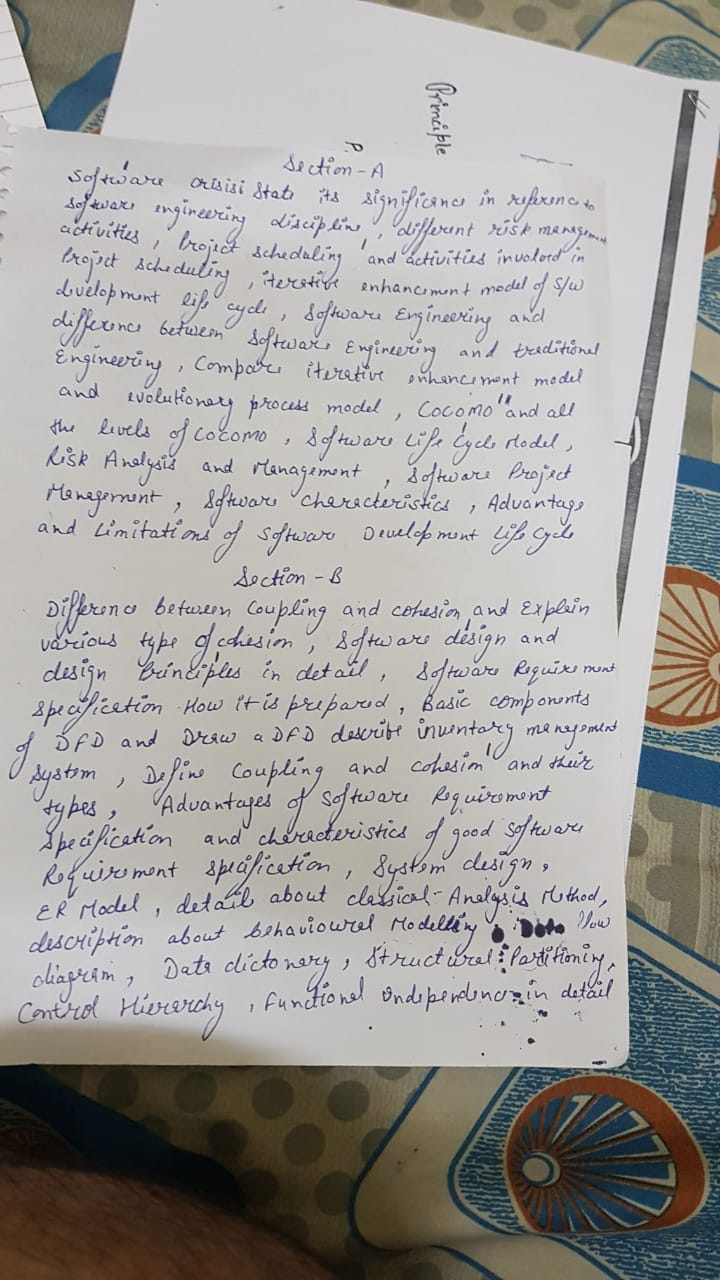 Principle
P
Section-A
Software crisisi State its significance in reference to
software engineering discipline, different risk management
activities, Project scheduling and activities involved in
Project scheduling, iterative enhancement model of S/W
development life cycle, Software Engineering and
difference between Software Engineering and traditional
Engineering, Compare iterative enhancement model
and evolutionary process model, COCOMO and all
the levels of COCOMO, Software Life Cycle Model,
Risk Analysis and Management, Software Project
Management, Software characteristics, Advantage
and Limitations of Software Development Life Cycle
Section-B
Difference between Coupling and cohesion and Explain
various type of cohesion, Software design and
design Principles in detail, Software Requirement
Specification How it is prepared, Basic components
of DFD and Draw a DFD describe inventory management
System, Define Coupling and cohesion and their
types, Advantages of Software Requirement
Specification and characteristics of good software
Requirement specification, System design,
ER Model, detail about classical Analysis Method,
description about behavioural Modelling Data flow
diagram, Data dictonary, Structural Partitioning,
Control Hierarchy, Functional independence in detail